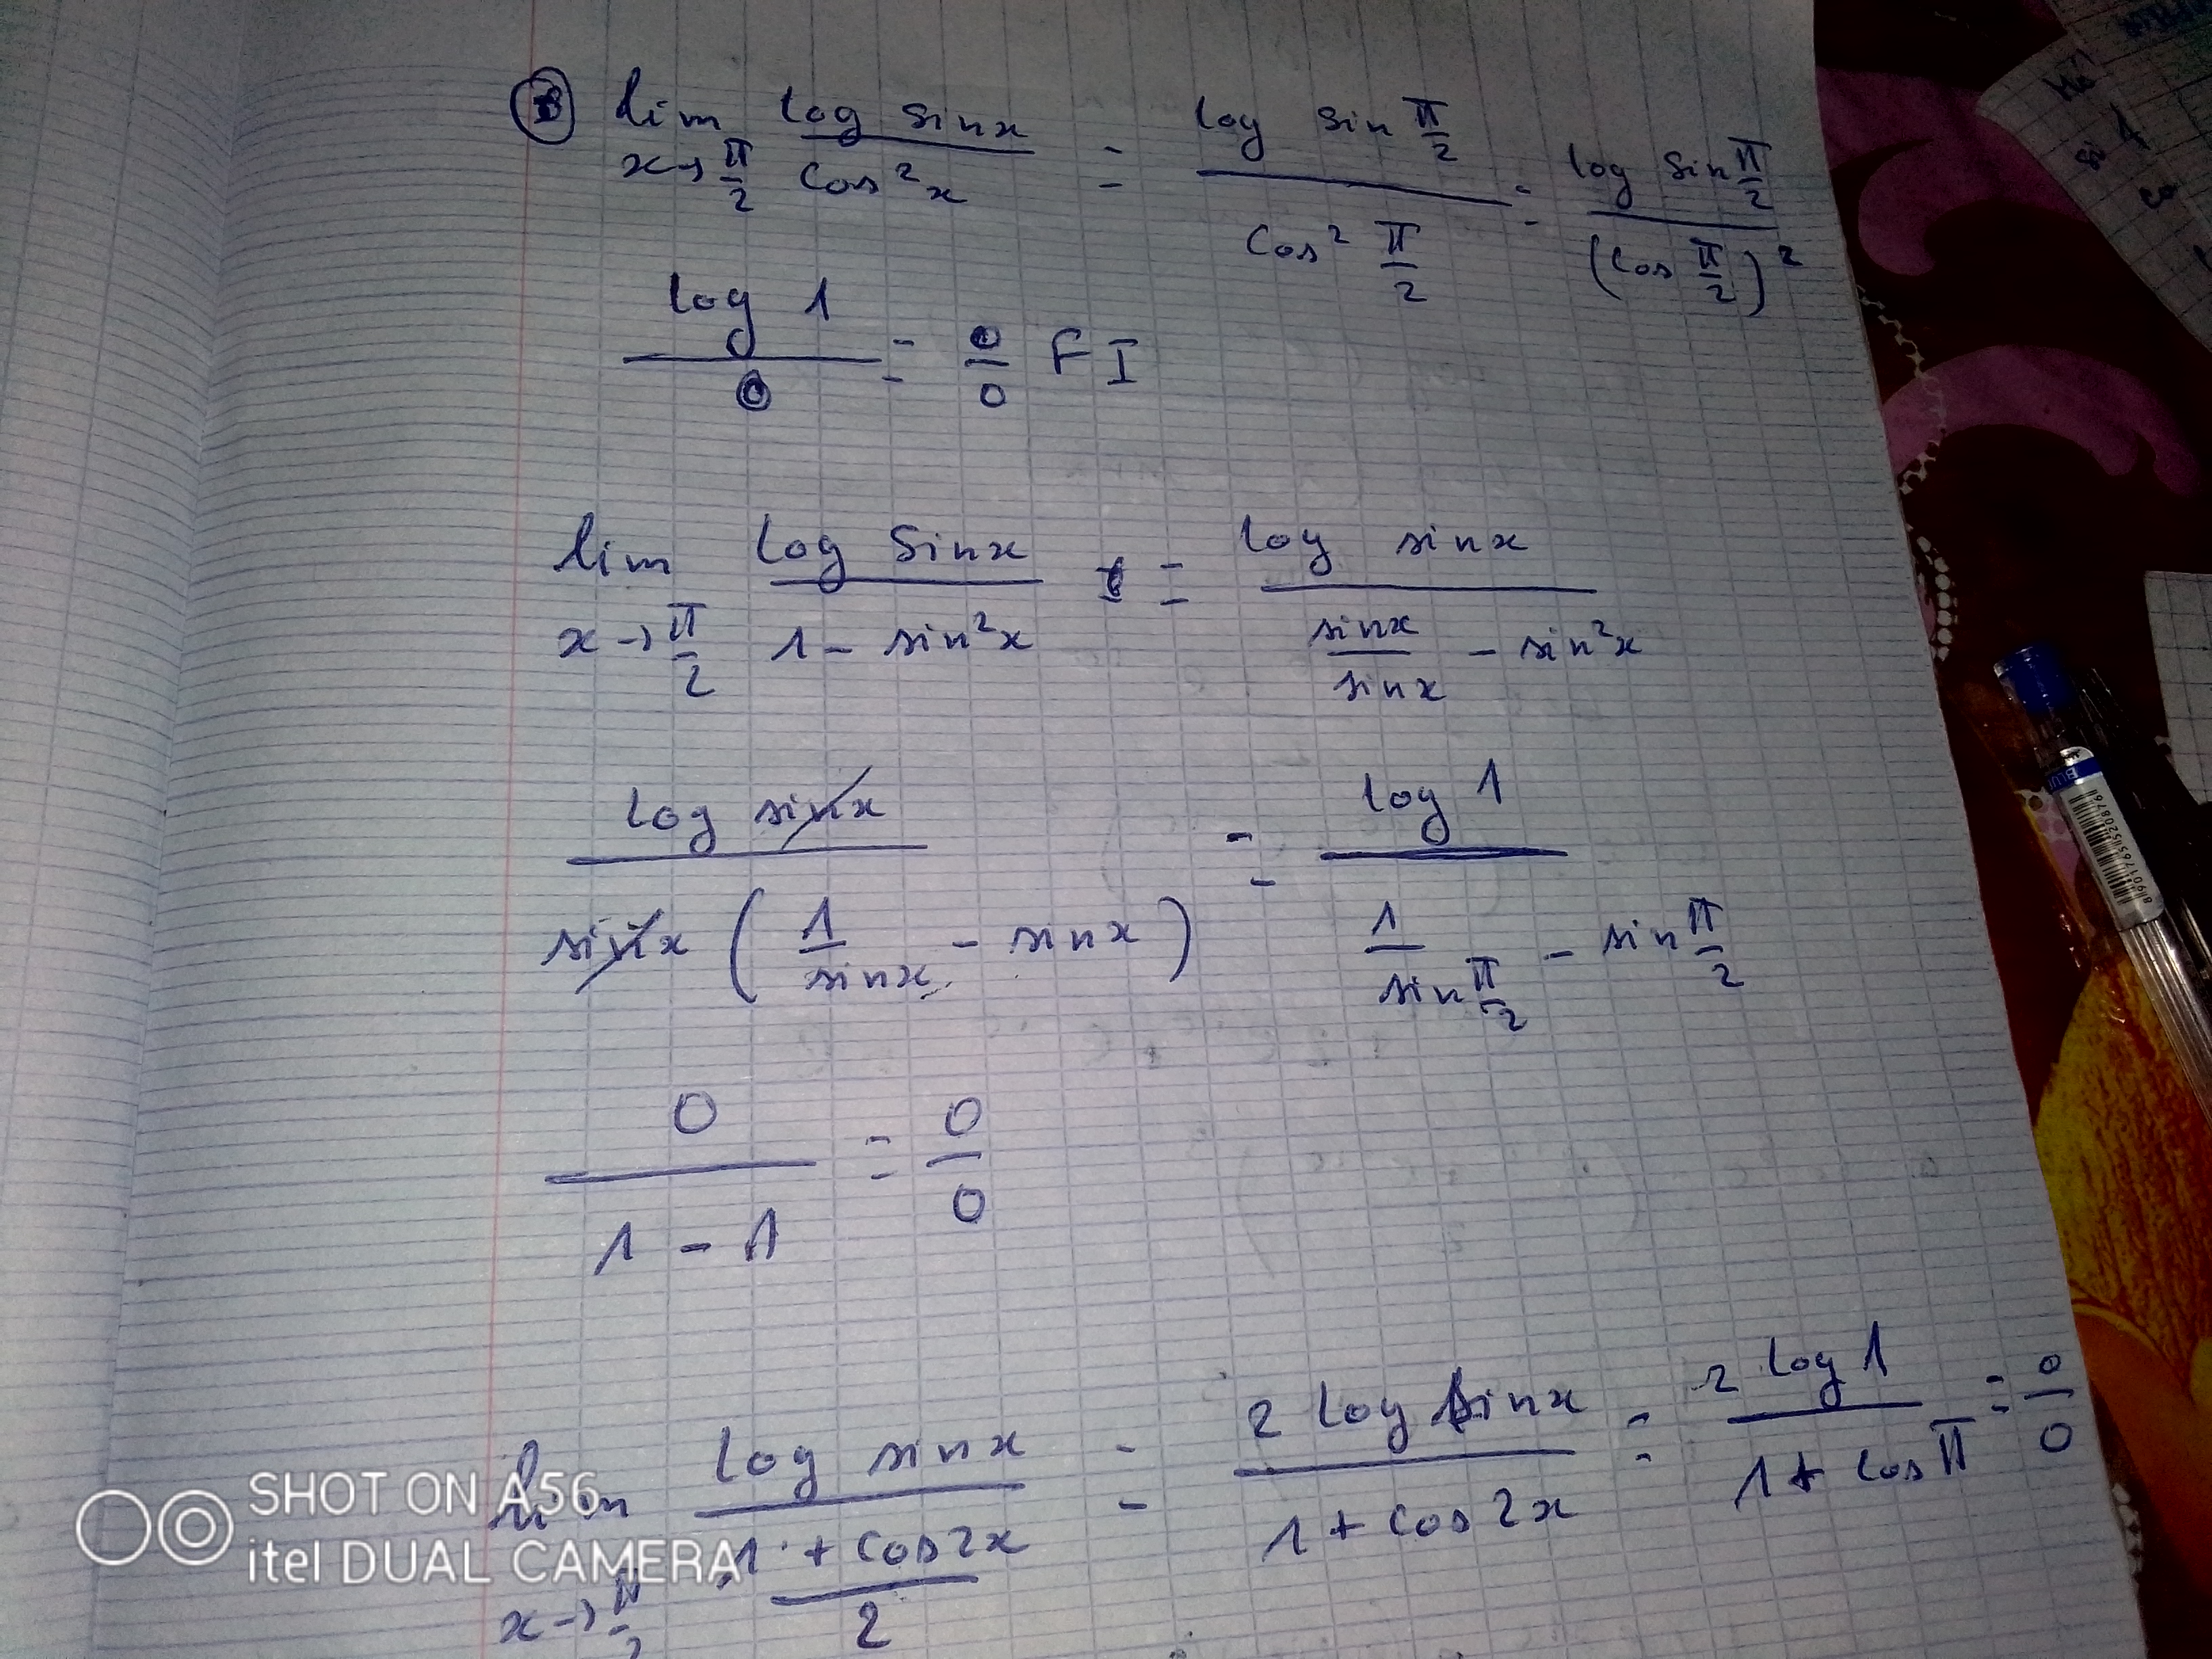 lim log sinx / cos²x = log sin π/2 / cos² π/2 = log sin π/2 / (cos π/2)²
x→π/2
log 1 / 0 = 0/0 FI
lim log sinx / 1 - sin²x = log sinx / sinx/sinx - sin²x
x→π/2
log sinx / sinx (1/sinx - sinx) = log 1 / 1/sin π/2 - sin π/2
0 / 1 - 1 = 0/0
lim log sinx / 1 + cos2x / 2 = 2 log sinx / 1 + cos2x = 2 log 1 / 1 + cos π = 0/0
x→π/2
SHOT ON A56
itel DUAL CAMERA
BLU